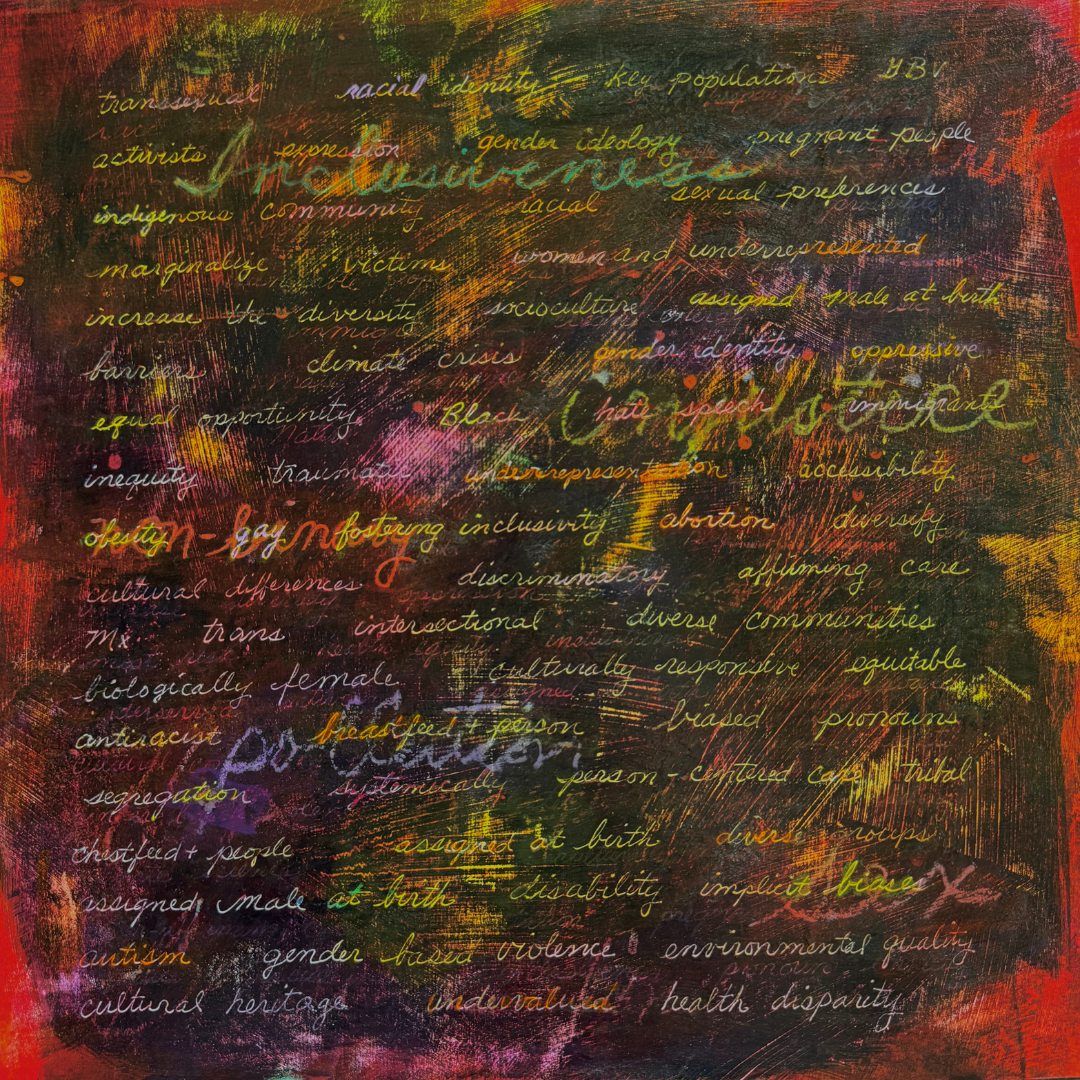 transsexual racial identity key populations GBV
activists expression gender ideology pregnant people
Inclusiveness
indigenous community racial sexual preferences
marginalize victims women and underrepresented
increase the diversity socioculture assigned male at birth
barriers climate crisis gender identity oppressive
equal opportunity Black hate speech immigrants
injustice
inequity traumatic underrepresentation accessibility
obesity gay fostering inclusivity abortion diversify
non-binary
cultural differences discriminatory affirming care
Mx trans intersectional diverse communities
biologically female culturally responsive equitable
antiracist breastfeed + person biased pronouns
pollution
segregation systemically person-centered care tribal
chestfeed + people assigned at birth diverse groups
assigned male at birth disability implicit biases
sex
autism gender based violence environmental quality
cultural heritage undervalued health disparity